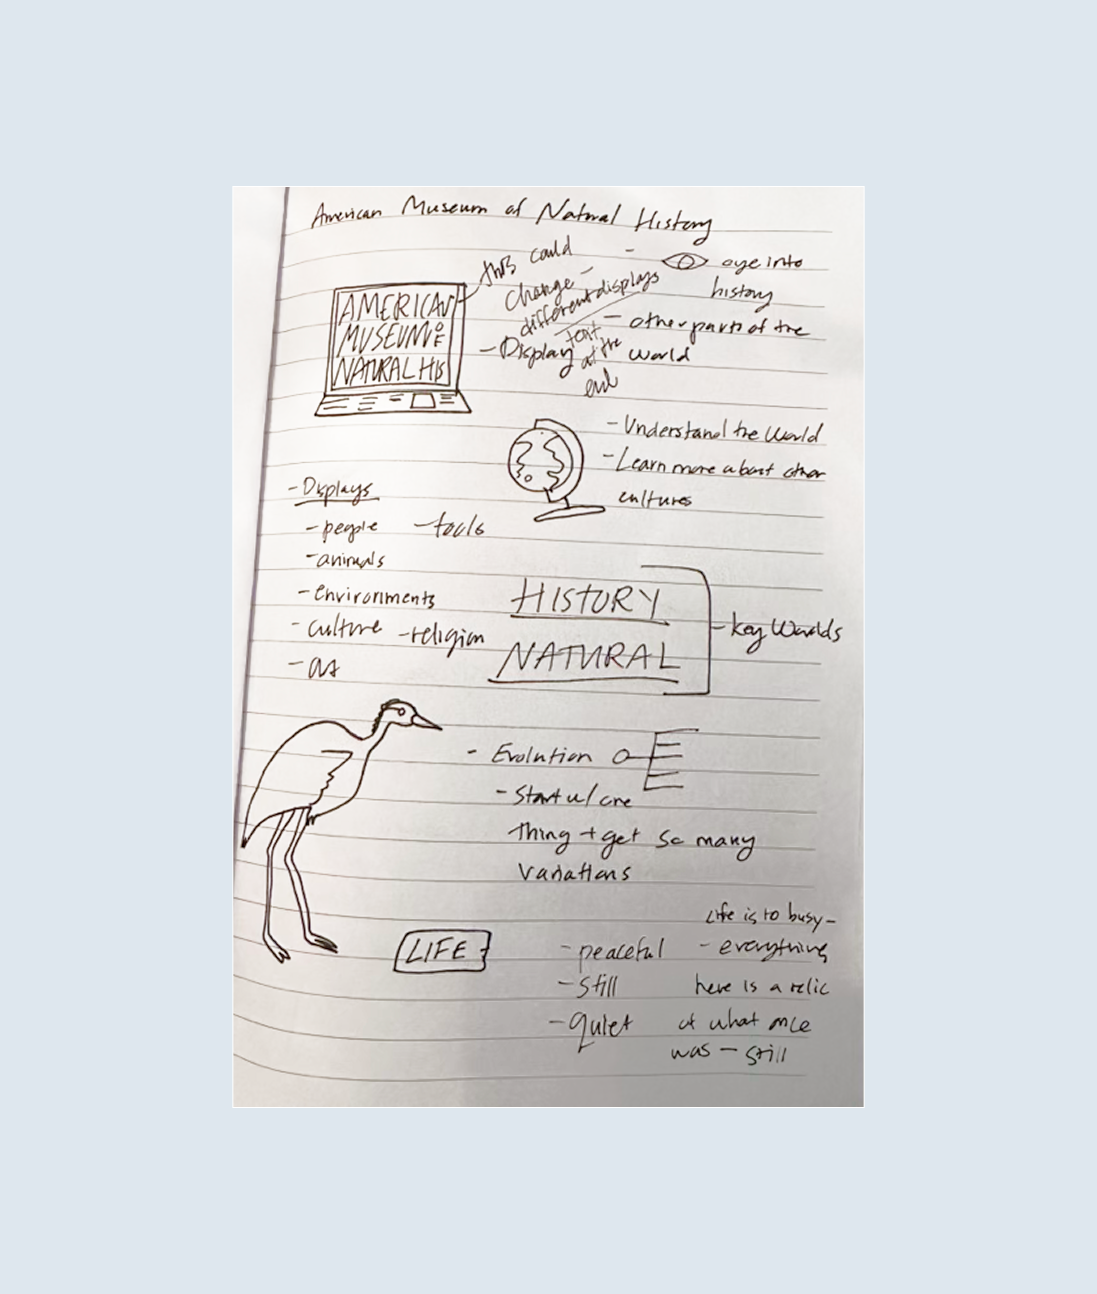 American Museum of Natural History
this could
change -
different displays
- eye into
history
AMERICAN
MUSEUM OF
NATURAL HIS
- Display text
at the
end
- other parts of the
world
- Understand the World
- Learn more about other
cultures
- Displays
- people - tools
- animals
- environments
- culture - religion
- art
HISTORY
NATURAL
- key Worlds
- Evolution
- Start w/ one
thing + get so many
variations
LIFE
- peaceful
- still
- quiet
Life is to busy -
- everything
here is a relic
of what once
was - still